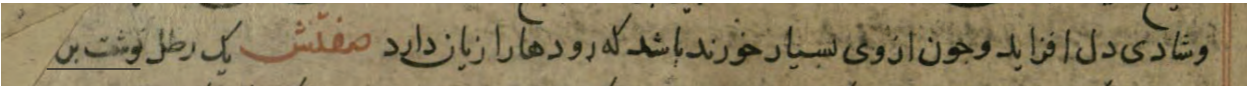 وشادی دل افزاید وجون ازوی بسیار خورند باشد که رودهارا زیان دارد صفتش یک رطل گوشت بن